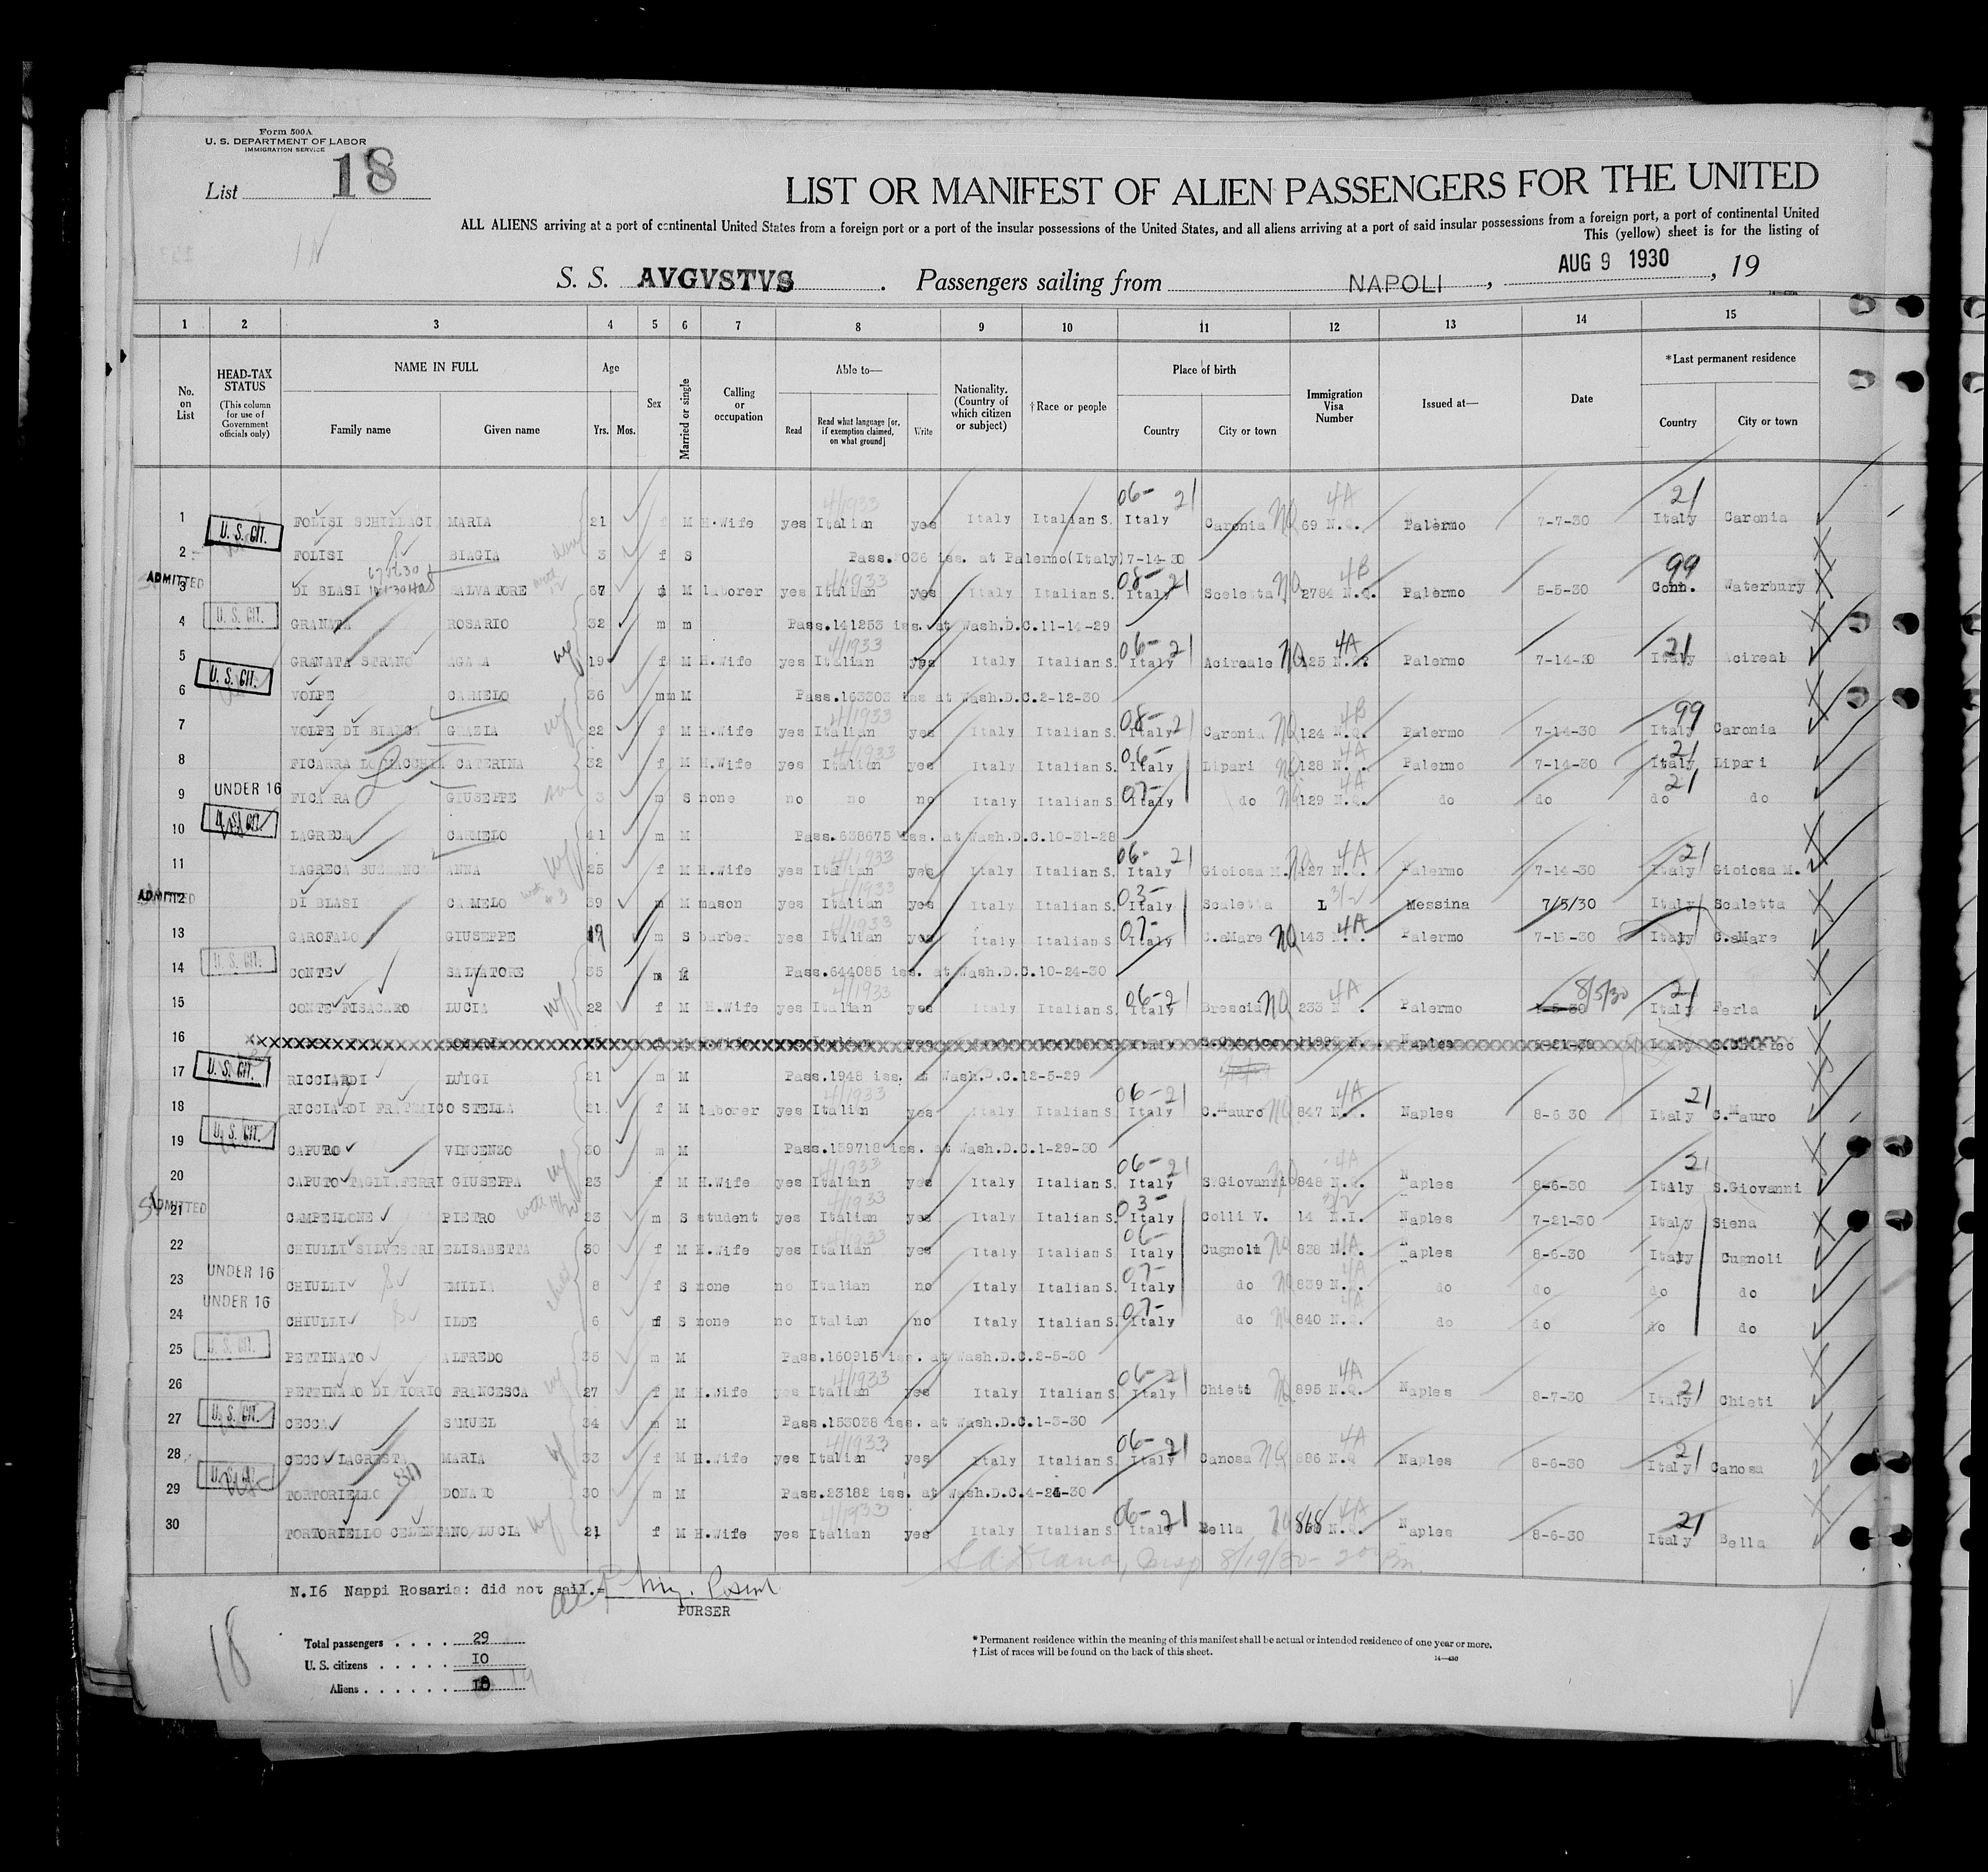 Form 500A
U. S. DEPARTMENT OF LABOR
IMMIGRATION SERVICE
List 18
LIST OR MANIFEST OF ALIEN PASSENGERS FOR THE UNITED
ALL ALIENS arriving at a port of continental United States from a foreign port or a port of the insular possessions of the United States, and all aliens arriving at a port of said insular possessions from a foreign port, a port of continental United
This (yellow) sheet is for the listing of
S. S. AVGVSTVS. Passengers sailing from NAPOLI, AUG 9 1930, 19
1 2 3 4 5 6 7 8 9 10 11 12 13 14 15
No. on List
HEAD-TAX STATUS (This column for use of Government officials only)
NAME IN FULL Family name Given name
Age Yrs. Mos.
Sex
Married or single
Calling or occupation
Able to— Read Read what language [or, if exemption claimed, on what ground] Write
Nationality. (Country of which citizen or subject)
†Race or people
Place of birth Country City or town
Immigration Visa Number
Issued at—
Date
*Last permanent residence Country City or town
1 FOLISI SCHILLACI MARIA 21 f M H.Wife yes Italian yes Italy Italian S. 06- 21 Italy Caronia NQ 69 N.Q. 4A Palermo 7-7-30 21 Italy Caronia
2 U. S. CIT. FOLISI BIAGIA 3 f S Pass. 036 iss. at Palermo(Italy)7-14-30
3 ADMITTED DI BLASI SALVATORE 67 M laborer yes Italian yes Italy Italian S. 08-21 Italy Scaletta NQ 2784 N.Q. 4B Palermo 5-5-30 99 Conn. Waterbury
4 U. S. CIT. GRANATA ROSARIO 32 m m Pass.141253 iss. at Wash.D.C.11-14-29
5 GRANATA STRANO AGATA 19 f M H.Wife yes Italian yes Italy Italian S. 06-21 Italy Acireale NQ 125 N.Q. 4A Palermo 7-14-30 21 Italy Acireal
6 U. S. CIT. VOLPE CARMELO 36 m M Pass.163303 iss at Wash.D.C.2-12-30
7 VOLPE DI BIANCA GRAZIA 22 f M H.Wife yes Italian yes Italy Italian S. 08-21 Italy Caronia NQ 124 N.Q. 4B Palermo 7-14-30 99 Italy Caronia
8 FICARRA LO CATERINA 32 f M H.Wife yes Italian yes Italy Italian S. 06- Italy Lipari NQ 128 N.Q. 4A Palermo 7-14-30 21 Italy Lipari
9 UNDER 16 FICARRA GIUSEPPE 3 m S none no no no Italy Italian S. 07- Italy do NQ 129 N.Q. 4A do do 21 do do
10 U. S. CIT. LAGRECA CARMELO 41 m M Pass.638675 iss. at Wash.D.C.10-31-28
11 LAGRECA ANNA 25 f M H.Wife yes Italian yes Italy Italian S. 06- 21 Italy Gioiosa M. NQ 127 N.Q. 4A Palermo 7-14-30 21 Italy Gioiosa M.
12 ADMITTED DI BLASI CARMELO 39 m M mason yes Italian yes Italy Italian S. 03- Italy Scaletta 3/2 Messina 7/5/30 Italy Scaletta
13 GAROFALO GIUSEPPE 19 m S barber yes Italian yes Italy Italian S. 07- Italy C.aMare NQ 143 N.Q. 4A Palermo Italy C.aMare
14 U. S. CIT. CONTE SALVATORE 35 m M Pass.644085 iss. at Wash.D.C.10-24-30
15 CONTE PISACARO LUCIA 22 f M H.Wife yes Italian yes Italy Italian S. 06-21 Italy Brescia NQ 233 N. 4A Palermo 8/5/30 21 Italy Ferla
16 Italian yes Italy Naples
17 U. S. CIT. RICCIARDI LUIGI 21 m M Pass.1948 iss. at Wash.D.C.12-5-29
18 RICCIARDI FRATEMICO STELLA 21 f M laborer yes Italian yes Italy Italian S. 06-21 Italy C.Mauro NQ 847 N.Q. 4A Naples 8-6 30 21 Italy C.Mauro
19 U. S. CIT. CAPUTO VINCENZO 30 m M Pass.159718 iss. at Wash.D.C.1-29-30
20 CAPUTO TAGLIAFERRI GIUSEPPA 23 f M H.Wife yes Italian yes Italy Italian S. 06-21 Italy S.Giovanni NQ 848 N.Q. 4A Naples 8-6-30 21 Italy S.Giovanni
21 ADMITTED CAMPELLONE PIETRO 23 m S student yes Italian yes Italy Italian S. 03- Italy Colli V. 14 N.I. 3/2 Naples 7-21-30 Italy Siena
22 CHIULLI SILVESTRI ELISABETTA 30 f M H.Wife yes Italian yes Italy Italian S. 06- Italy Cugnoli NQ 838 N.Q. 4A Naples 8-6-30 Italy Cugnoli
23 UNDER 16 CHIULLI EMILIA 8 f S none no Italian no Italy Italian S. 07- Italy do NQ 839 N.Q. 4A do do do do
24 UNDER 16 CHIULLI ILDE 6 f S none no Italian no Italy Italian S. 07- Italy do NQ 840 N.Q. 4A do do do do
25 U. S. CIT. PETTINATO ALFREDO 35 m M Pass.160915 iss. at Wash.D.C.2-5-30
26 PETTINATO DI IORIO FRANCESCA 27 f M H.Wife yes Italian yes Italy Italian S. 06-21 Italy Chieti NQ 895 N.Q. 4A Naples 8-7-30 21 Italy Chieti
27 U. S. CIT. CECCA SAMUEL 34 m M Pass.153038 iss. at Wash.D.C.1-3-30
28 CECCA LAGRESTA MARIA 33 f M H.Wife yes Italian yes Italy Italian S. 06-21 Italy Canosa NQ 886 N.Q 4A Naples 8-6-30 21 Italy Canosa
29 U. S. CIT. TORTORIELLO DONATO 30 m M Pass.23182 iss. at Wash.D.C.4-24-30
30 TORTORIELLO CELENTANO LUCIA 21 f M H.Wife yes Italian yes Italy Italian S. 06-21 Italy Bella NQ 868 N.Q. 4A Naples 8-6-30 21 Italy Bella
N.16 Nappi Rosaria: did not sail.-
PURSER
18
Total passengers . . . . 29
U. S. citizens . . . . . 10
Aliens . . . . . . 19
* Permanent residence within the meaning of this manifest shall be actual or intended residence of one year or more.
† List of races will be found on the back of this sheet.
14—430